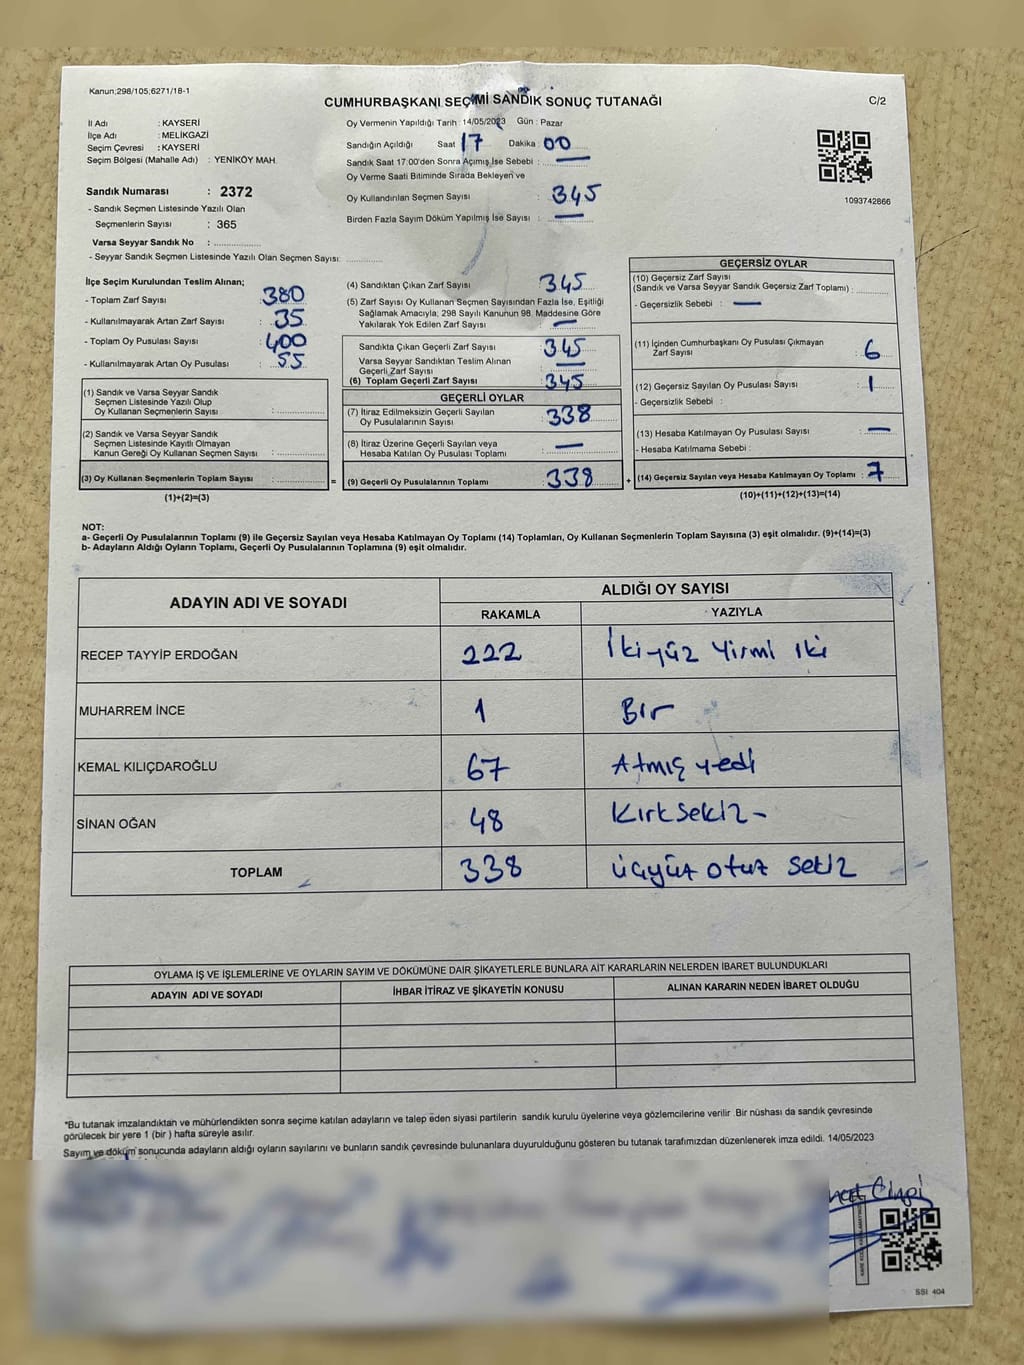 Kanun;298/105;6271/18-1
CUMHURBAŞKANI SEÇİMİ SANDIK SONUÇ TUTANAĞI
C/2
İl Adı : KAYSERİ
İlçe Adı : MELİKGAZİ
Seçim Çevresi : KAYSERİ
Seçim Bölgesi (Mahalle Adı) : YENİKÖY MAH.
Sandık Numarası : 2372
- Sandık Seçmen Listesinde Yazılı Olan
Seçmenlerin Sayısı : 365
Varsa Seyyar Sandık No :
- Seyyar Sandık Seçmen Listesinde Yazılı Olan Seçmen Sayısı:
Oy Vermenin Yapıldığı Tarih : 14/05/2023 Gün : Pazar
Sandığın Açıldığı Saat 17 Dakika 00
Sandık Saat 17:00'den Sonra Açımış İse Sebebi : —
Oy Verme Saati Bitiminde Sırada Bekleyen ve
Oy Kullandırılan Seçmen Sayısı : 345
Birden Fazla Sayım Döküm Yapılmış İse Sayısı : —
1093742866
İlçe Seçim Kurulundan Teslim Alınan;
- Toplam Zarf Sayısı : 380
- Kullanılmayarak Artan Zarf Sayısı : 35
- Toplam Oy Pusulası Sayısı : 400
- Kullanılmayarak Artan Oy Pusulası : 55
(1) Sandık ve Varsa Seyyar Sandık
Seçmen Listesinde Yazılı Olup
Oy Kullanan Seçmenlerin Sayısı :
(2) Sandık ve Varsa Seyyar Sandık
Seçmen Listesinde Kayıtlı Olmayan
Kanun Gereği Oy Kullanan Seçmen Sayısı :
(3) Oy Kullanan Seçmenlerin Toplam Sayısı :
(1)+(2)=(3)
=
(4) Sandıktan Çıkan Zarf Sayısı : 345
(5) Zarf Sayısı Oy Kullanan Seçmen Sayısından Fazla İse, Eşitliği
Sağlamak Amacıyla, 298 Sayılı Kanunun 98. Maddesine Göre
Yakılarak Yok Edilen Zarf Sayısı : —
Sandıkta Çıkan Geçerli Zarf Sayısı : 345
Varsa Seyyar Sandıktan Teslim Alınan
Geçerli Zarf Sayısı : —
(6) Toplam Geçerli Zarf Sayısı : 345
GEÇERLİ OYLAR
(7) İtiraz Edilmeksizin Geçerli Sayılan
Oy Pusulalarının Sayısı : 338
(8) İtiraz Üzerine Geçerli Sayılan veya
Hesaba Katılan Oy Pusulası Toplamı : —
(9) Geçerli Oy Pusulalarının Toplamı : 338
+
GEÇERSİZ OYLAR
(10) Geçersiz Zarf Sayısı
(Sandık ve Varsa Seyyar Sandık Geçersiz Zarf Toplamı) :
- Geçersizlik Sebebi : —
(11) İçinden Cumhurbaşkanı Oy Pusulası Çıkmayan
Zarf Sayısı : 6
(12) Geçersiz Sayılan Oy Pusulası Sayısı : 1
- Geçersizlik Sebebi :
(13) Hesaba Katılmayan Oy Pusulası Sayısı : —
- Hesaba Katılmama Sebebi :
(14) Geçersiz Sayılan veya Hesaba Katılmayan Oy Toplamı : 7
(10)+(11)+(12)+(13)=(14)
NOT:
a- Geçerli Oy Pusulalarının Toplamı (9) ile Geçersiz Sayılan veya Hesaba Katılmayan Oy Toplamı (14) Toplamları, Oy Kullanan Seçmenlerin Toplam Sayısına (3) eşit olmalıdır. (9)+(14)=(3)
b- Adayların Aldığı Oyların Toplamı, Geçerli Oy Pusulalarının Toplamına (9) eşit olmalıdır.
ADAYIN ADI VE SOYADI
ALDIĞI OY SAYISI
RAKAMLA YAZIYLA
RECEP TAYYİP ERDOĞAN 222 İkiyüz yirmi iki
MUHARREM İNCE 1 Bir
KEMAL KILIÇDAROĞLU 67 Atmış yedi
SİNAN OĞAN 48 Kırksekiz-
TOPLAM 338 üçyüz otuz sekiz
OYLAMA İŞ VE İŞLEMLERİNE VE OYLARIN SAYIM VE DÖKÜMÜNE DAİR ŞİKAYETLERLE BUNLARA AİT KARARLARIN NELERDEN İBARET BULUNDUKLARI
ADAYIN ADI VE SOYADI İHBAR İTİRAZ VE ŞİKAYETİN KONUSU ALINAN KARARIN NEDEN İBARET OLDUĞU
*Bu tutanak imzalandıktan ve mühürlendikten sonra seçime katılan adayların ve talep eden siyasi partilerin sandık kurulu üyelerine veya gözlemcilerine verilir .Bir nüshası da sandık çevresinde
görülecek bir yere 1 (bir ) hafta süreyle asılır.
Sayım ve döküm sonucunda adayların aldığı oyların sayılarını ve bunların sandık çevresinde bulunanlara duyurulduğunu gösteren bu tutanak tarafımızdan düzenlenerek imza edildi. 14/05/2023
SSI 404